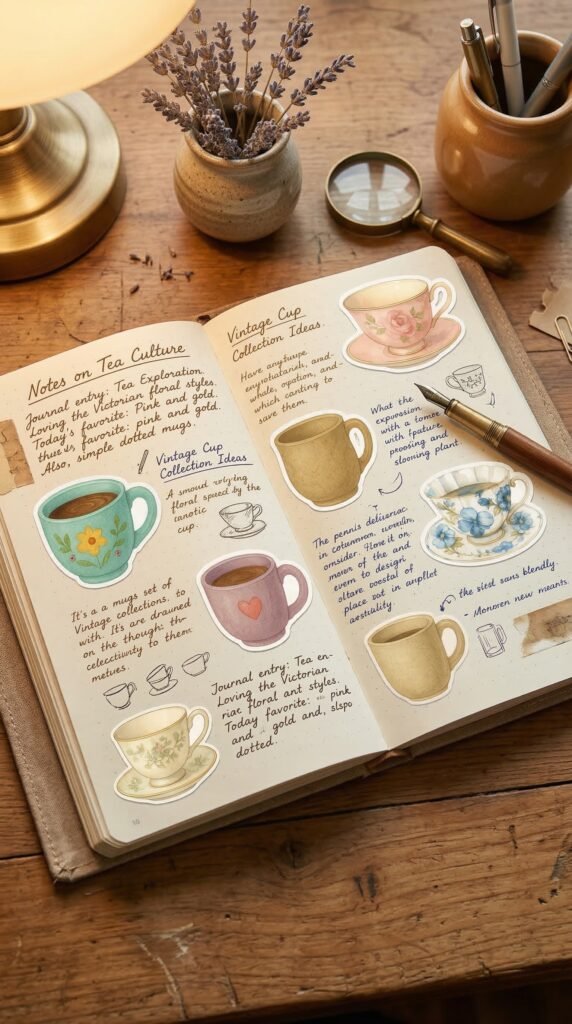 Notes on Tea Culture
Journal entry: Tea Exploration.
Loving the Victorian floral styles.
Today's favorite: Pink and gold.
thus favorite: pink and gold.
Also, simple dotted mugs.
Vintage Cup
Collection Ideas
A smoud
floral speed by the
cup.
It's a a mugs set of
Vintage collections, to
with. It's are drawned
on the though: the
to them
metures.
Journal entry: Tea en-
Loving the Victorian
riat floral ant styles.
Today favorite: pink
and gold and, slspo
dotted.
10
Vintage Cup
Collection Ideas.
Have
whale, opotion, and
which canting to
save them.
What the
exporession,
with a tome
with
proosing and
slooning plant
The pennis
in
omsider. Hore it on
maven of the and
even to design
oltare oostal of
place out in
the sled sans blendly.
- new meants.